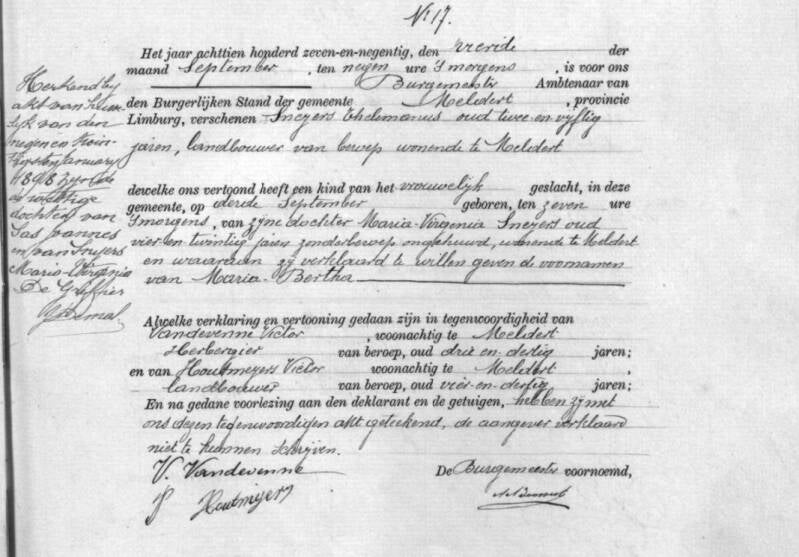 N: 17.
Het jaar achttien honderd zeven-en-negentig, den vierde der
maand September, ten negen ure 'smorgens, is voor ons
Burgemeester Ambtenaar van
den Burgerlijken Stand der gemeente Meldert, provincie
Limburg, verschenen Sneyers Thelemanus oud twee en vyftig
jaren, landbouwer van beroep wonende te Meldert
dewelke ons vertoond heeft een kind van het vrouwelijk geslacht, in deze
gemeente, op derde September geboren, ten zeven ure
'smorgens, van zyne dochter Maria-Virginia Sneyers oud
vier en twintig jaren zonder beroep ongehuwd, wonende te Meldert
en waaraan zy verklaard te willen geven de voornamen
van Maria-Bertha
Alwelke verklaring en vertooning gedaan zijn in tegenwoordigheid van
Vandevenne Victor, woonachtig te Meldert
Herbergier van beroep, oud drie en dertig jaren;
en van Houtmeyers Victor woonachtig te Meldert,
landbouwer van beroep, oud vier-en-dertig jaren;
En na gedane voorlezing aan den deklarant en de getuigen, hebben zy met
ons dezen tegenwoordigen akt geteekend, de aangever verklaard
niet te kunnen schryven.
V. Vandevenne
De Burgemeester voornoemd,
Houtmeyers
Herkend by
akt van huwe
lyk van den
negen en twin-
tigsten January
1898 zynde
als wettige
dochter van
Sas Joannes
en van Sneyers
Maria-Virginia
De Griffier